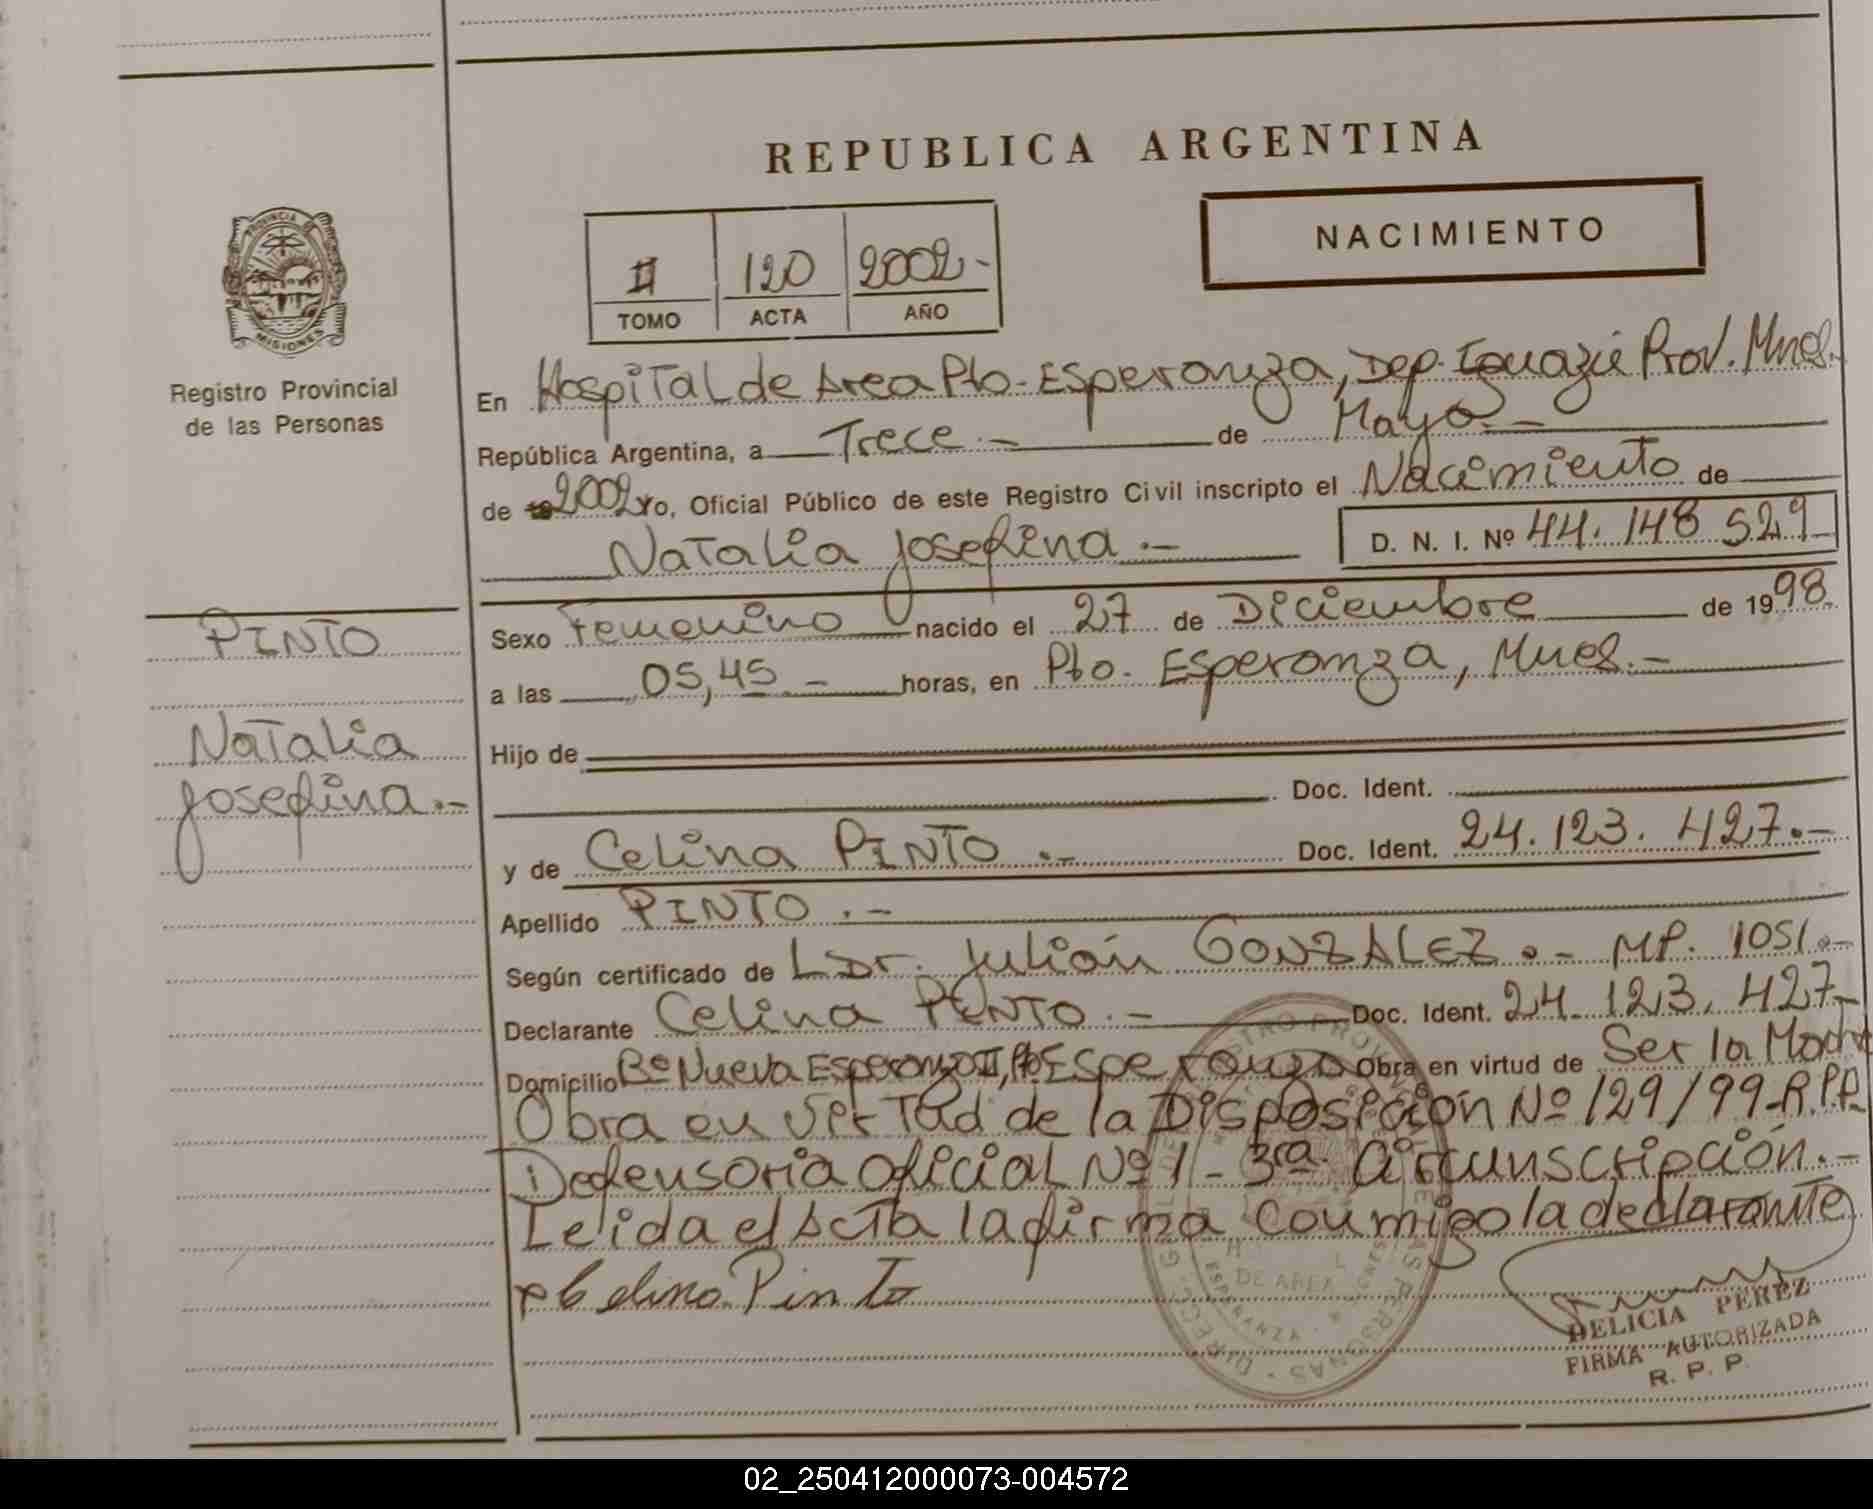 REPUBLICA ARGENTINA
NACIMIENTO
II 120 2002.-
TOMO ACTA AÑO
PROVINCIA DE
MISIONES
Registro Provincial
de las Personas
En Hospital de Area Pto. Esperanza, Dep. Iguazú Prov. Mnes.
República Argentina, a Trece.- de Mayo.-
de 19 2002 Yo, Oficial Público de este Registro Civil inscripto el Nacimiento de
Natalia Josefina.- D. N. I. Nº 44.148 529
PINTO
Natalia
Josefina.-
Sexo Femenino nacido el 27 de Diciembre de 1998.
a las 05,45.- horas, en Pto. Esperanza, Mnes.-
Hijo de
Doc. Ident.
y de Celina PINTO.- Doc. Ident. 24.123.427.-
Apellido PINTO.-
Según certificado de Dr. Julián GONZALEZ.- MP. 1051.-
Declarante Celina PINTO.- Doc. Ident. 24.123.427-
Domicilio Bº Nueva Esperanza II, Pto Esperanza Obra en virtud de Ser la Madre
Obra en virtud de la Disposición Nº 129/99-R.P.P.
Defensoria Oficial Nº 1 - 3ra. Circunscripción.-
Leida el Acta la firma conmigo la declarante
Celina Pinto
DELICIA PEREZ
FIRMA AUTORIZADA
R. P. P.
02_250412000073-004572